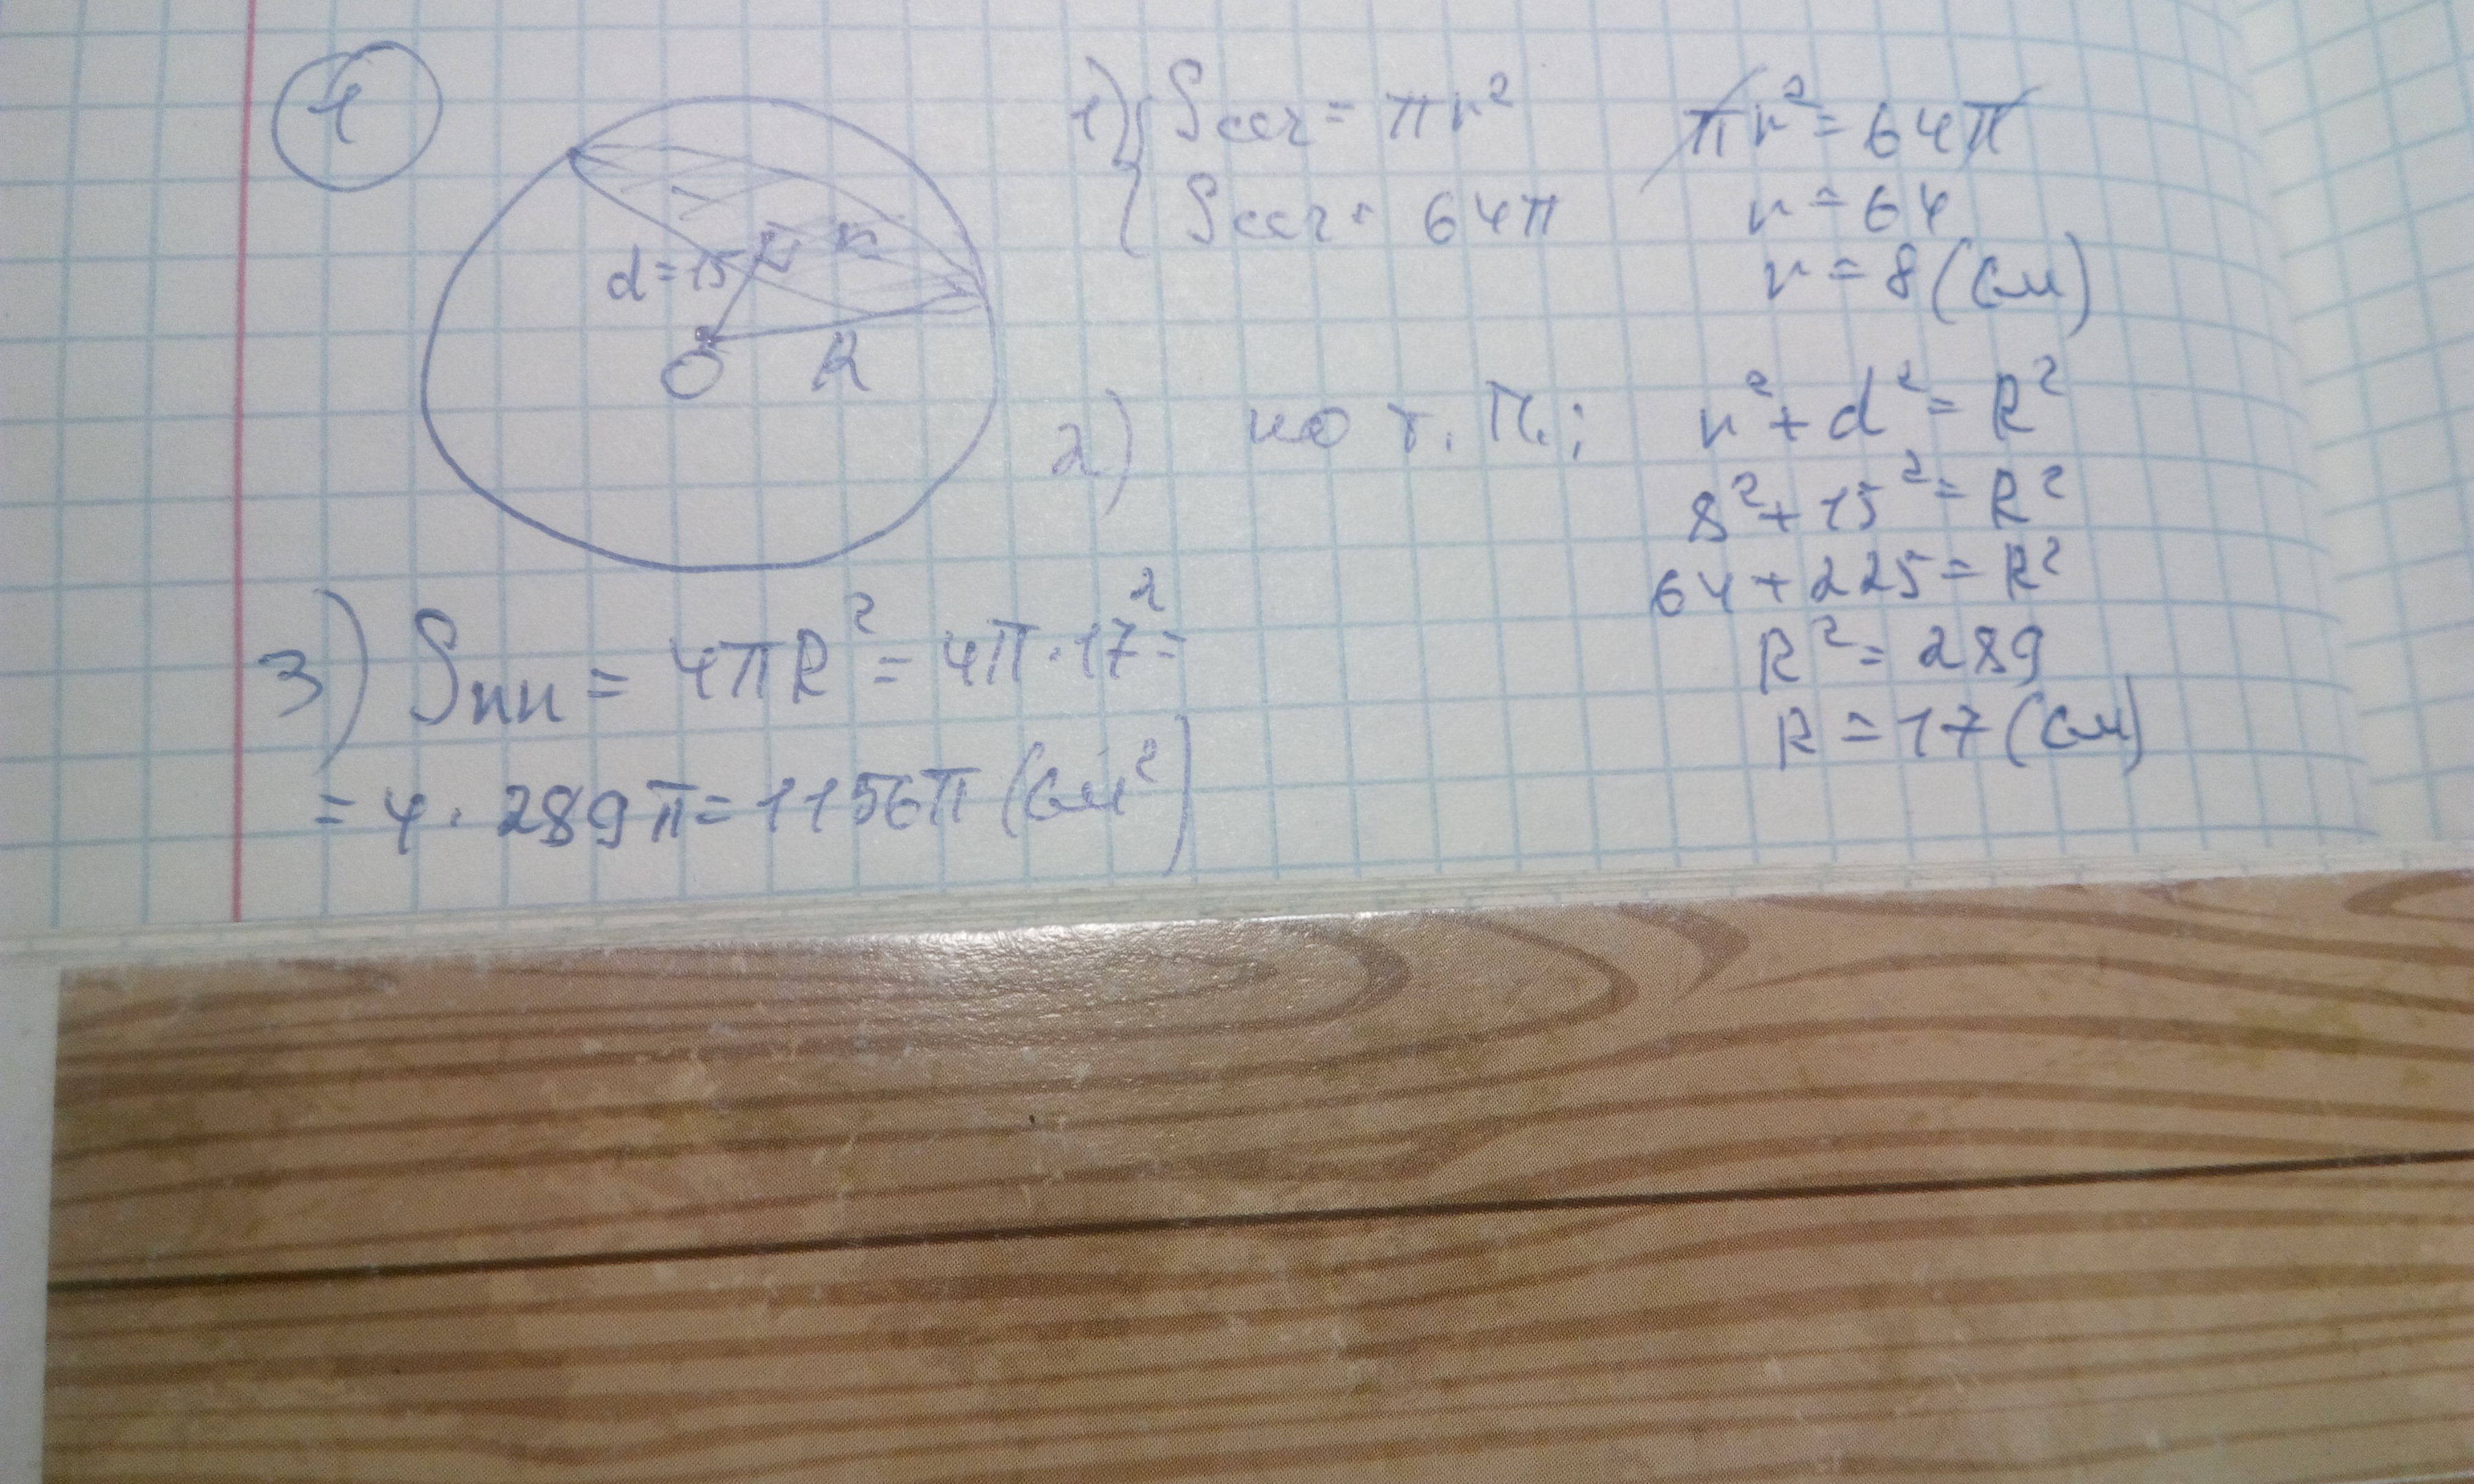 4
d=15
r
O
R
1) { Sсеч = πr²
Sсеч = 64π
πr² = 64π
r = 64
r = 8 (см)
2) по т. П.:
r² + d² = R²
8² + 15² = R²
64 + 225 = R²
R² = 289
R = 17 (см)
3) Sпп = 4πR² = 4π·17² =
= 4 · 289π = 1156π (см²)